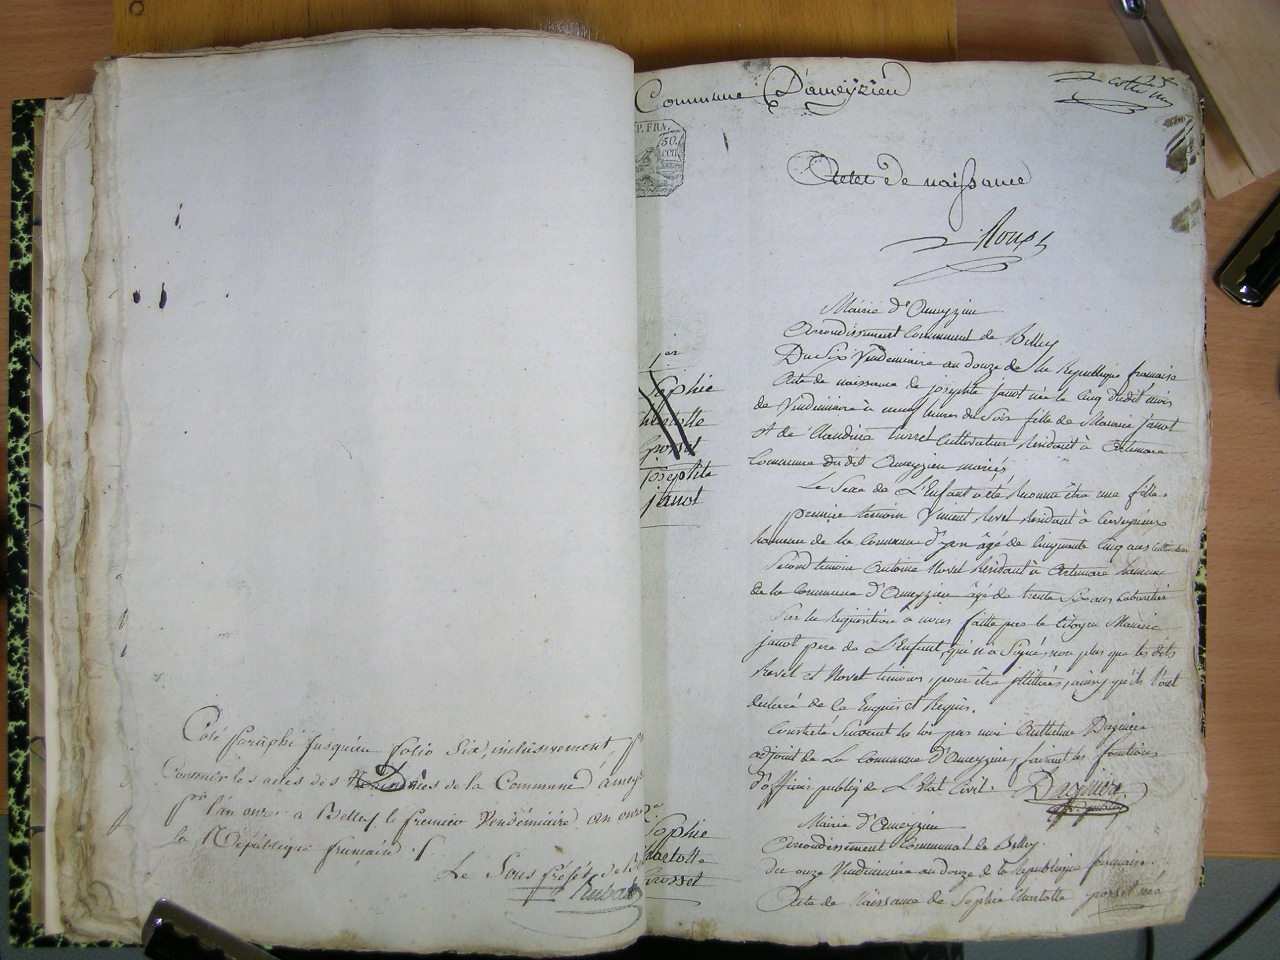 Coté Paraphé jusques au folio Six, inclusivement pr
Commencer les actes des Décès de la Commune d'ameyzieu
pr l'an onze à Belley le premier Vendémiaire an onze de
la République française
Le Sous préfet de
Commune D'ameyzieu
P. FRA.
50.
cen
Actes de naissance
Roux
Mairie d'Ameyzieu
Arrondissement Communal de Belley
Du Six Vendemiaire an douze de la Republique francaise
Acte de naissance de josephte janot née le Cinq dudit mois
de Vendemiaire à neuf heures du Soir fille de Maurice janot
et de Claudine turrel Cultivateurs Residant à Artemare
Commune du dit Ameyzieu mariés
Le Sexe de L'Enfant a été Reconnu être une fille.
premier temoin Vincent Revet Residant à
hameau de la Commune d'yon âgé de Cinquante Cinq ans Cultivateur
Second temoin Antoine Novet Residant à Artemare hameau
de la Commune d'Ameyzieu âgé de trente Six ans
Sur la Requisition à nous faitte par le Citoyen Maurice
janot pere de L'Enfant, qui n'a Signé, non plus que les dits
Revet et Novet temoins, pour être illitérés, ainsy qu'ils l'ont
declaré de ce Enquis et Requis.
Constaté Suivant la loi par moi Anthelme Dagnin
adjoint de La Commune d'Ameyzieu, faisant les fonctions
d'officier public de L'Etat Civil.
1er
Sophie
Charlotte
Grosset
josephte
janot
Mairie d'Ameyzieu
Arrondissement Communal de Belley
du onze Vendemiaire an douze de la Republique francaise.
Acte de Naissance de Sophie Charlotte née
Sophie
Charlotte
Grosset